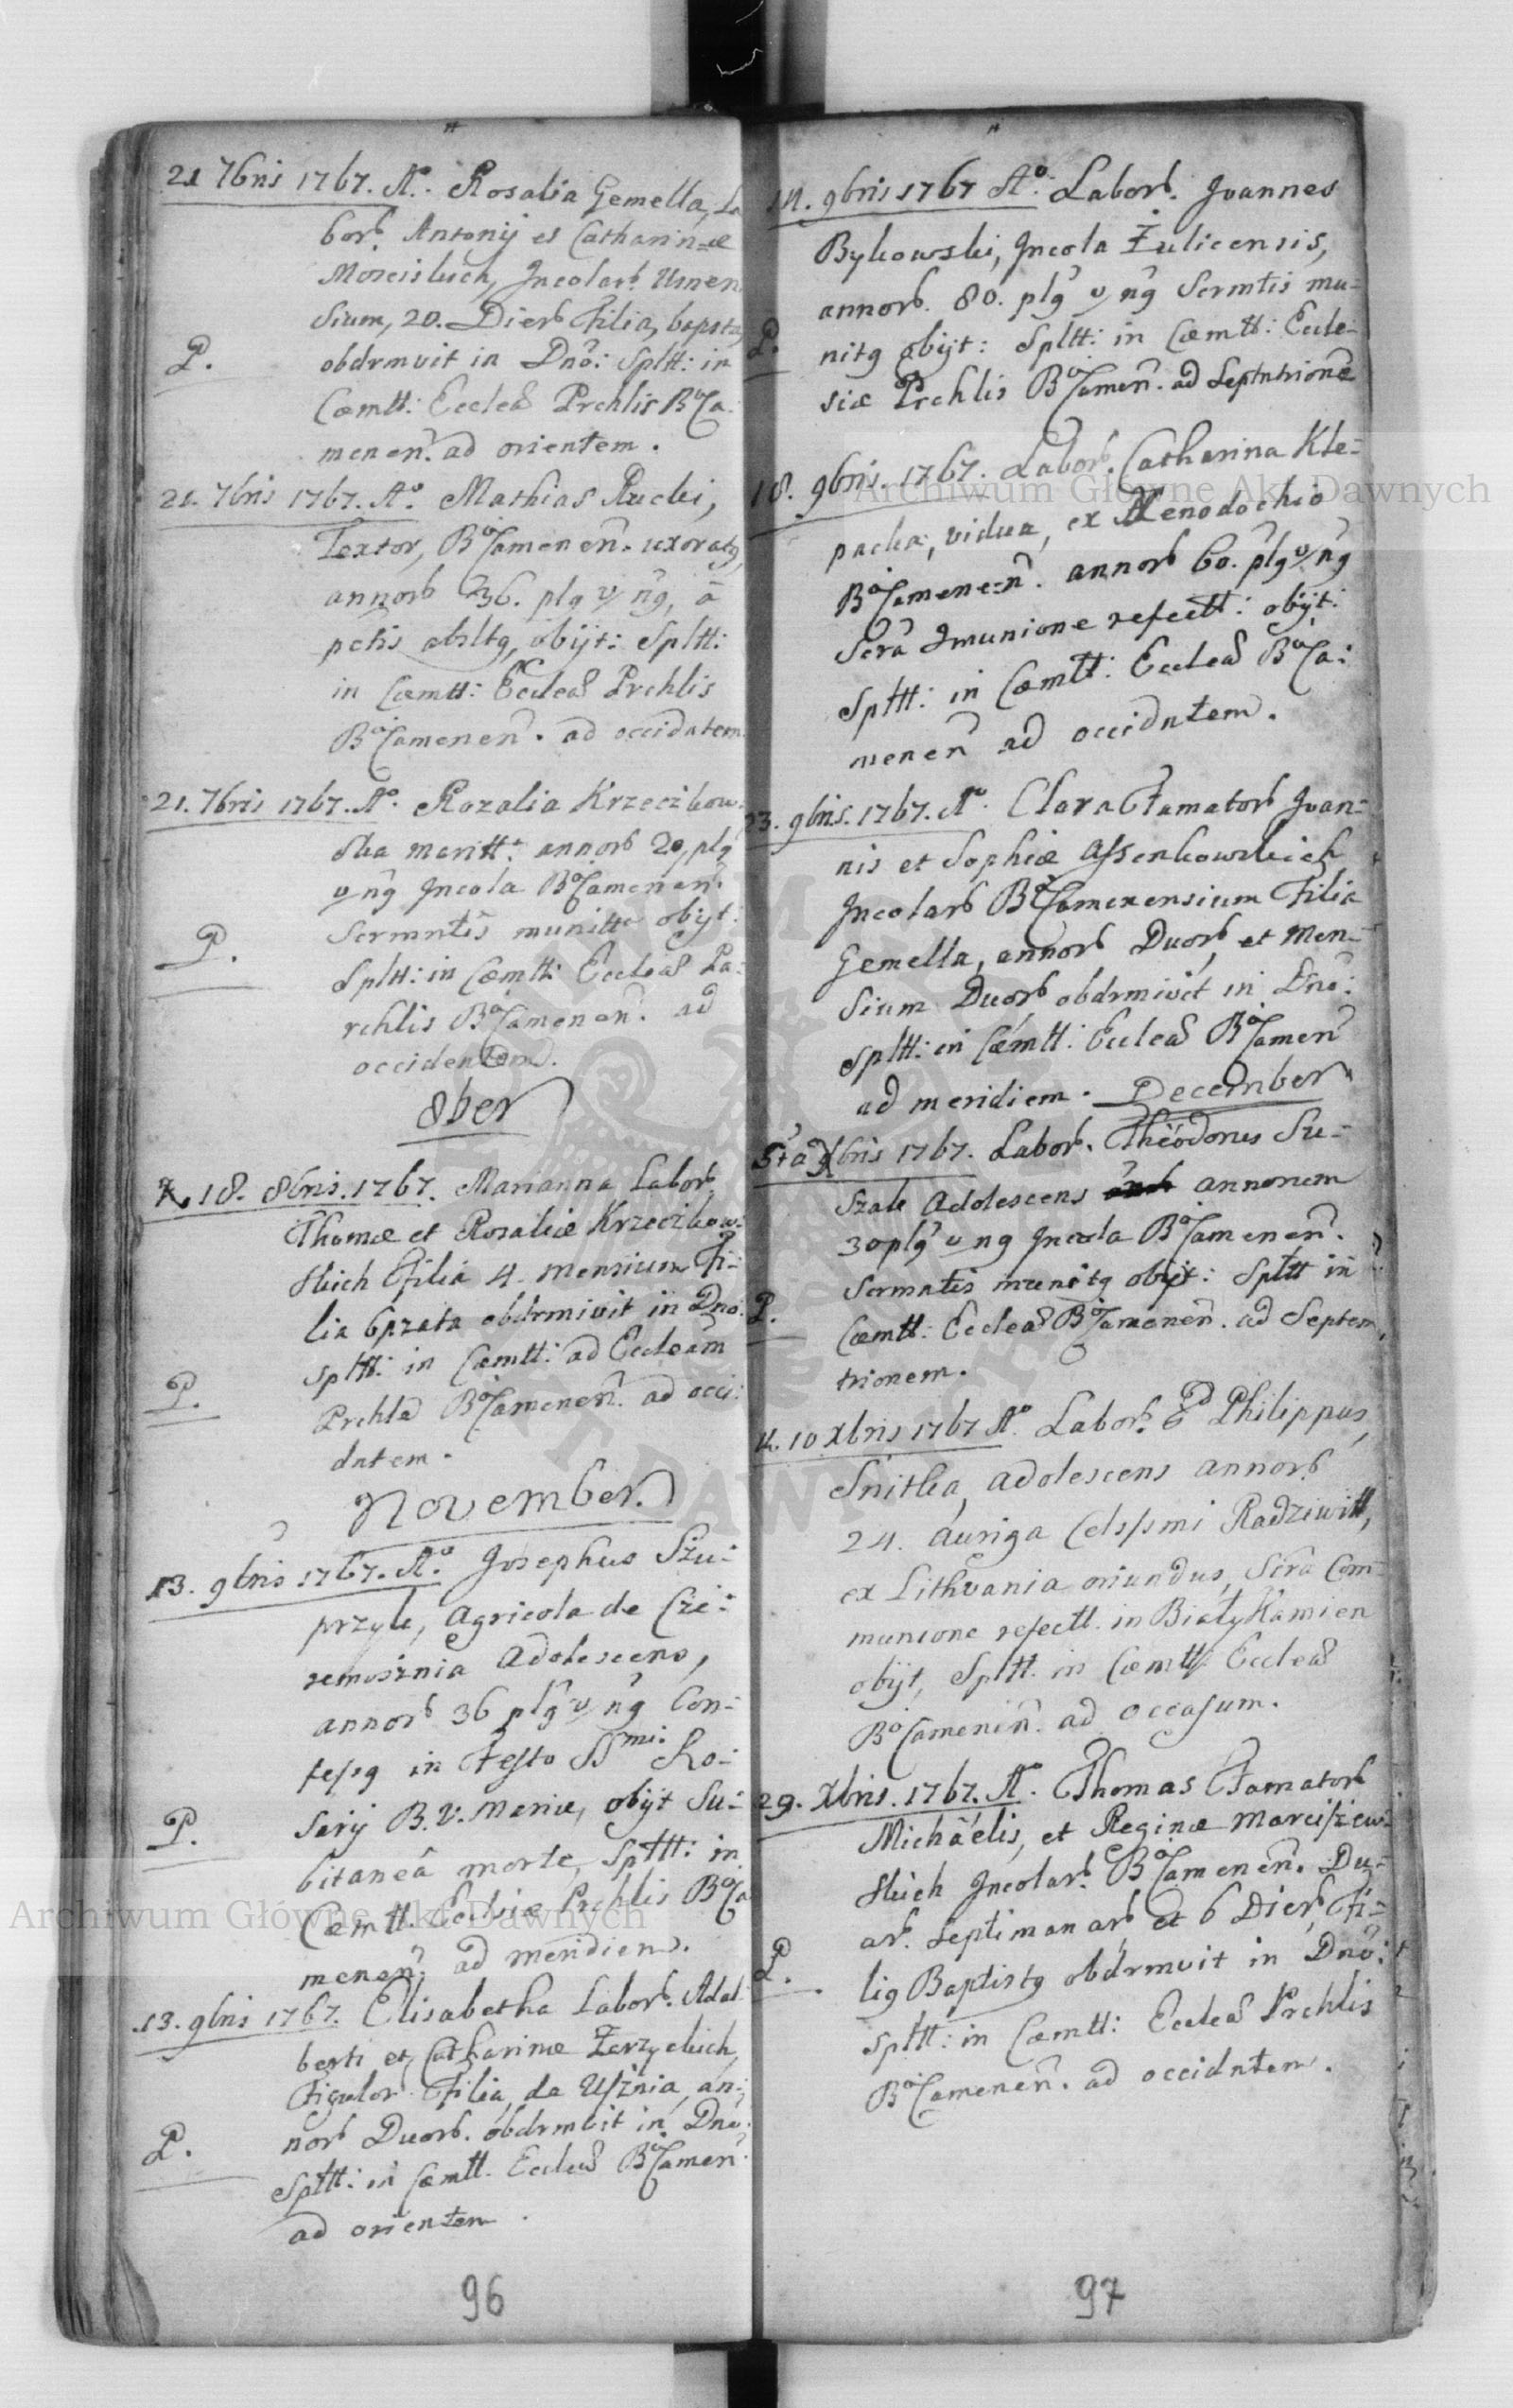 21 7bris 1767. Aº. Rosalia Gemella, La
borb. Antonij et Catharinæ
Moscisluch, Incolarb. Usnen
sium, 20. Dierb Filia, bapsta
P.
obdrmvit in Dnõ: Spltt: in
Cœmtt: Eccleæ Prchlis BºCa:
menen. ad orientem.
21. 7bris 1767. Aº. Mathias Rucki,
Textor, BºCamenen. uxoratg,
annorb 36. plg v ng, a
pctis absltg, obijt: Spltt:
in Cœmtt: Eccleæ Prchlis
BºCamenen. ad occidatem
21. 7bris 1767. Aº. Rozalia Krzeczkow
ska maritt: annorb 20, plg
v ng Incola BºCamenen.
Scrmntis munitta obijt:
P.
Spltt: in Cœmtt: Eccleæ Pa:
rchlis BºCamenen. ad
occidentem.
8ber
18. 8bris. 1767. Marianna Laborb
Thomæ et Rosaliæ Krzeczkow:
skich Filia 4. mensium Fi:
lia bpzata obdrmivit in Dno:
spltt: in Cœmtt: ad Eccleam
P.
Prchle BºCamenen. ad occi:
datem.
November.
13. 9bris 1767. Aº. Josephus Szu:
przyk, Agricola de Cze:
remosznia Adolescens,
annorb 36 plg v ng Con:
fessg in Festo SSmi Ro:
P.
sarij B. V. Mariæ, obijt Su:
bitaneâ morte, Spltt: in
Cœmtt. Ecclsiæ Prchlis BºCa
menen. ad meridiem.
13. 9bris 1767. Elisabetha Laborb. Adal
berti et Catharinæ Zarzyckich
Figulor. Filia, de Usznia, an:
P.
norb Duorb. obdrmvit in Dno:
Spltt: in Cœmtt. Eccleæ BºCamen
ad orientem.
96
14. 9bris 1767 Aº. Laborb. Joannes
Bykowski, Incola Żulicensis,
annorb. 80. plg v ng Scrmtis mu-
P.
nitg obijt: Spltt: in Cœmtt: Eccle-
siæ Prchlis BºCamen. ad Septntrionẽ
18. 9bris. 1767. Laborb. Catharina Kle-
packa, vidua, ex Xenodochio
BºCamene:n. annorb 60. plg v ng
Scra Imunione refectt: obijt:
Spltt: in Cœmtt: Eccleæ BºCa:
menen ad occidntem.
23. 9bris. 1767. Aº. Clara Famatorb Joan-
nis et Sophiæ Assenkowskich
Incolarb BºCamenensium Filia
Gemella, annorb Duorb, et Men-
sium Duorb obdrmivit in Dno:
Spltt: in Cœmtt: Eccleæ BºCamen
ad meridiem. December
5ta Xbris 1767. Laborb. Theodorus Su-
szak Adolescens annorum
30 plg v ng Incola BºCamenen.
Scrmntis munitg obijt: Spltt in
P.
Cœmtt: Eccleæ BºCamenen. ad Septem
trionem.
10 Xbris 1767 Aº. Laborb. Philippus,
Snitka, Adolescens annorb
24. Auriga Celssmi Radziwitt,
ex Lithvania oriundus, Scra Com-
munione refectt. in BiałyKamien
obijt, Spltt. in Cœmtt: Eccleæ
BºCamenin. ad occasum.
29. Xbris. 1767. Aº. Thomas Famatorb
Michaelis, et Reginæ Marciszew-
skich Incolarb. BºCamenen. Du-
arb. Septimanarb et 6 Dierb, Fi-
P.
lig Baptistg obdrmvit in Dnõ:
Spltt: in Cœmtt: Eccleæ Prchlis
BºCamenen. ad occidntem.
97
Archiwum Główne Akt Dawnych
Archiwum Główne Akt Dawnych